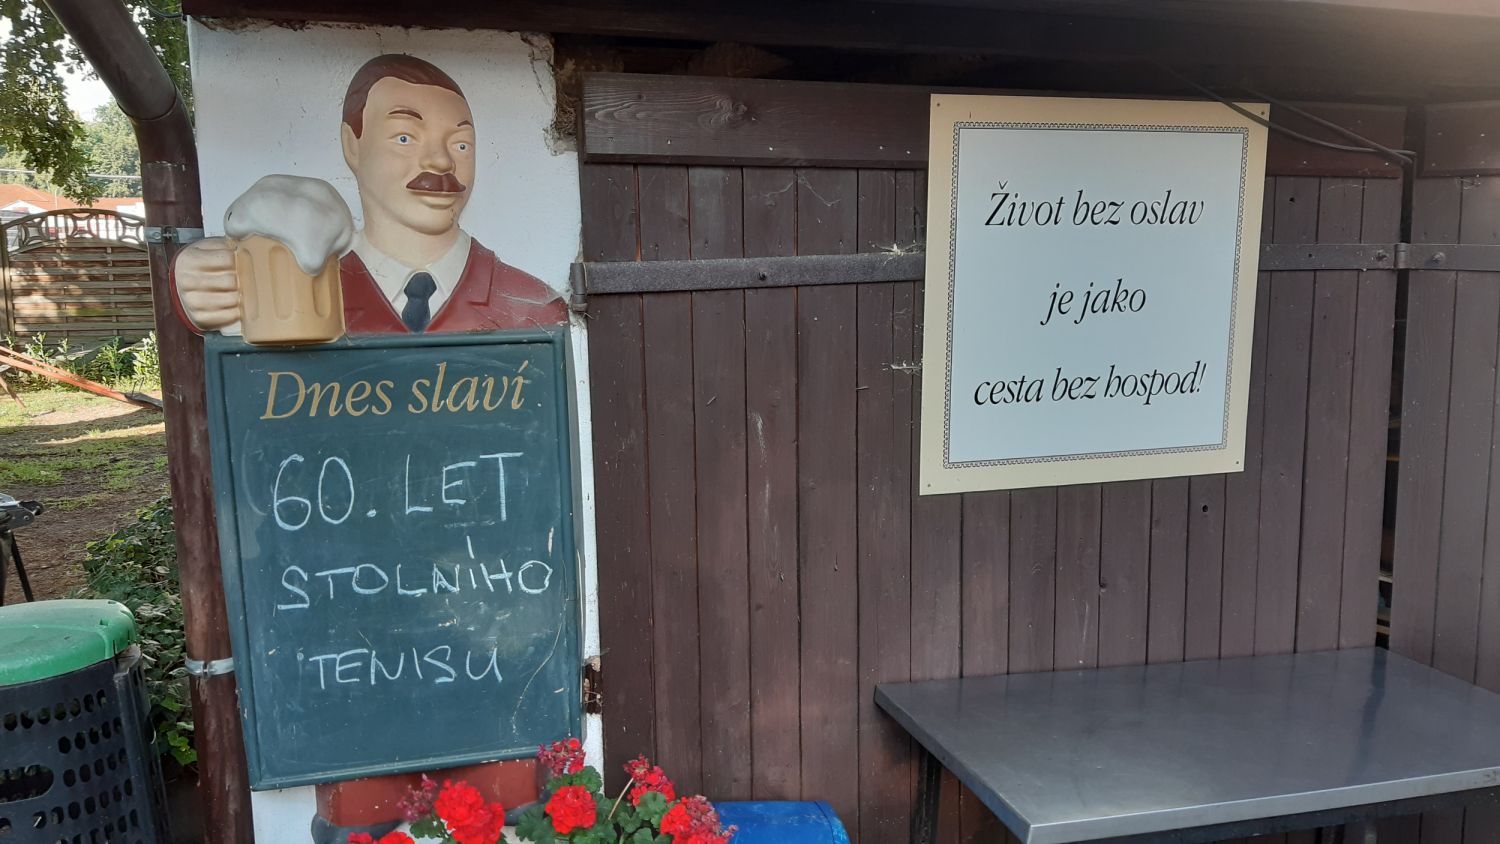 Dnes slaví
60. LET
STOLNÍHO
TENISU
Život bez oslav
je jako
cesta bez hospod!